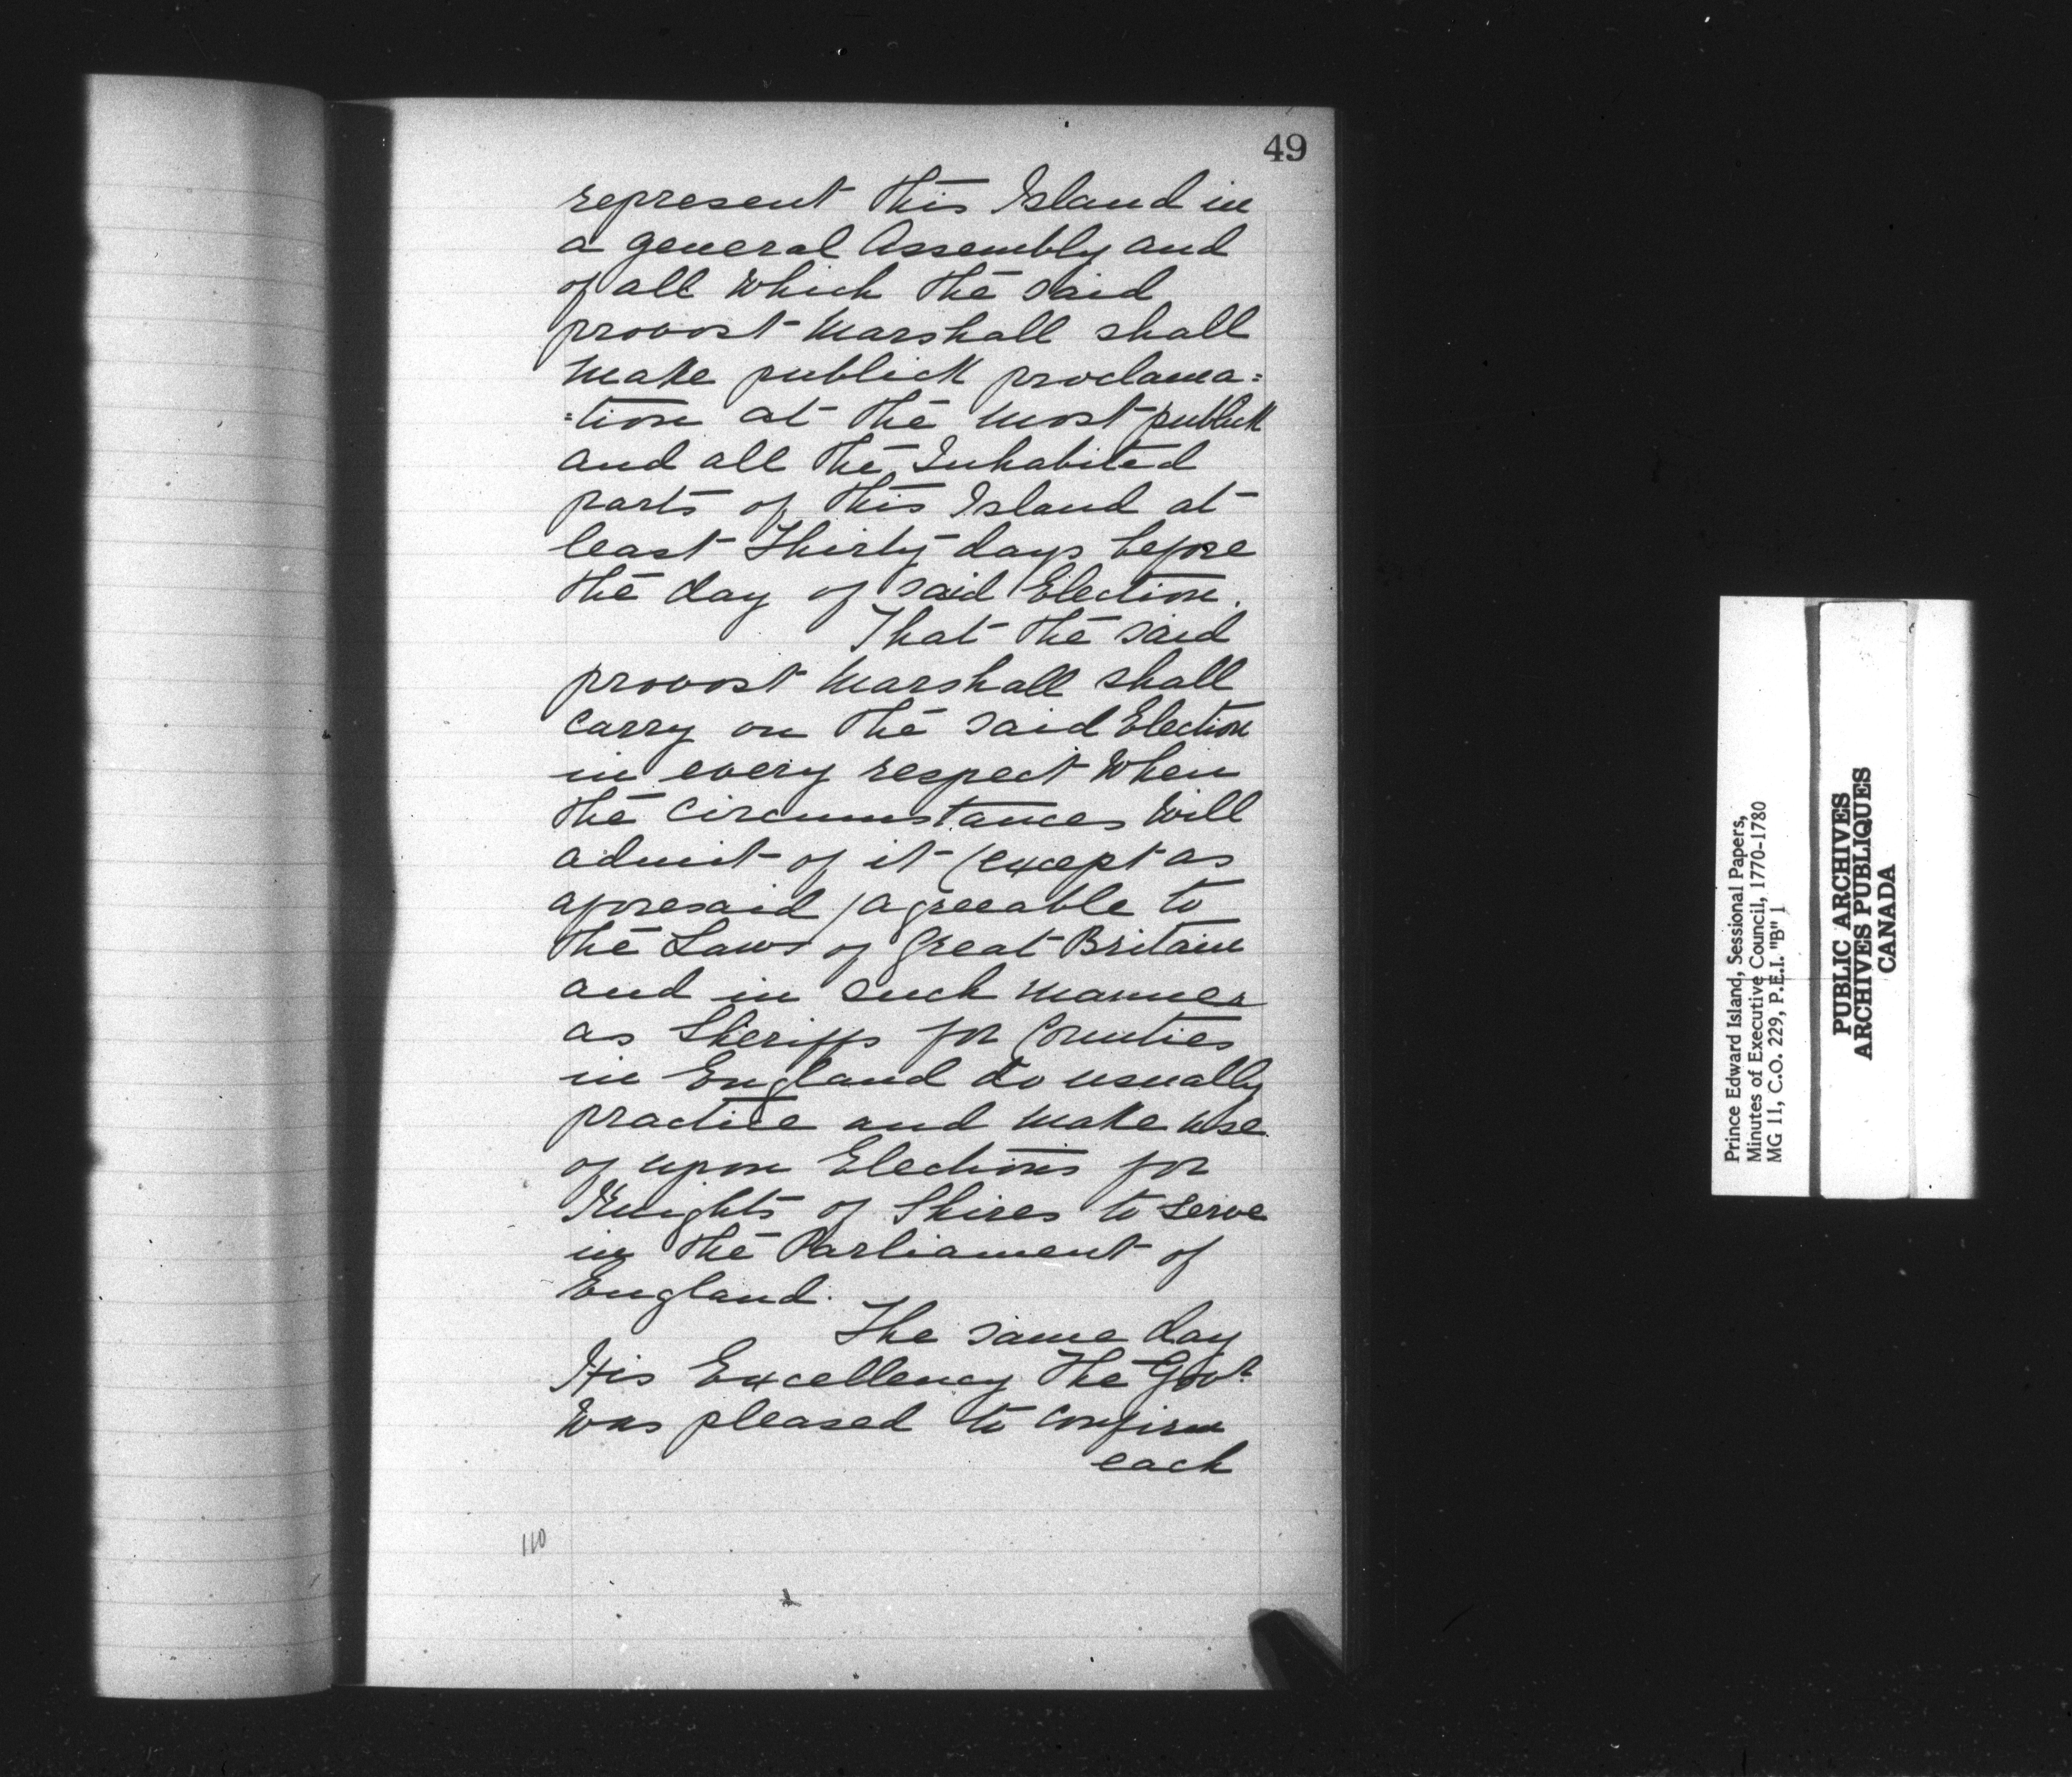 49
represent this Island in
a general Assembly and
of all which the said
provost Marshall shall
make publick proclama=
=tion at the most publick
and all the Inhabited
parts of this Island at
least Thirty days before
the day of said Election.
That the said
provost Marshall shall
carry on the said Election
in every respect when
the circumstances will
admit of it (except as
aforesaid) agreeable to
the Laws of Great Britain
and in such manner
as Sheriffs for Counties
in England do usually
practice and make use
of upon Elections for
Knights of Shires to serve
in the Parliament of
England.
The same day
His Excellency the Govr
was pleased to confirm
each
110
Prince Edward Island, Sessional Papers,
Minutes of Executive Council, 1770-1780
MG 11, C.O. 229, P.E.I. "B" 1
PUBLIC ARCHIVES
ARCHIVES PUBLIQUES
CANADA